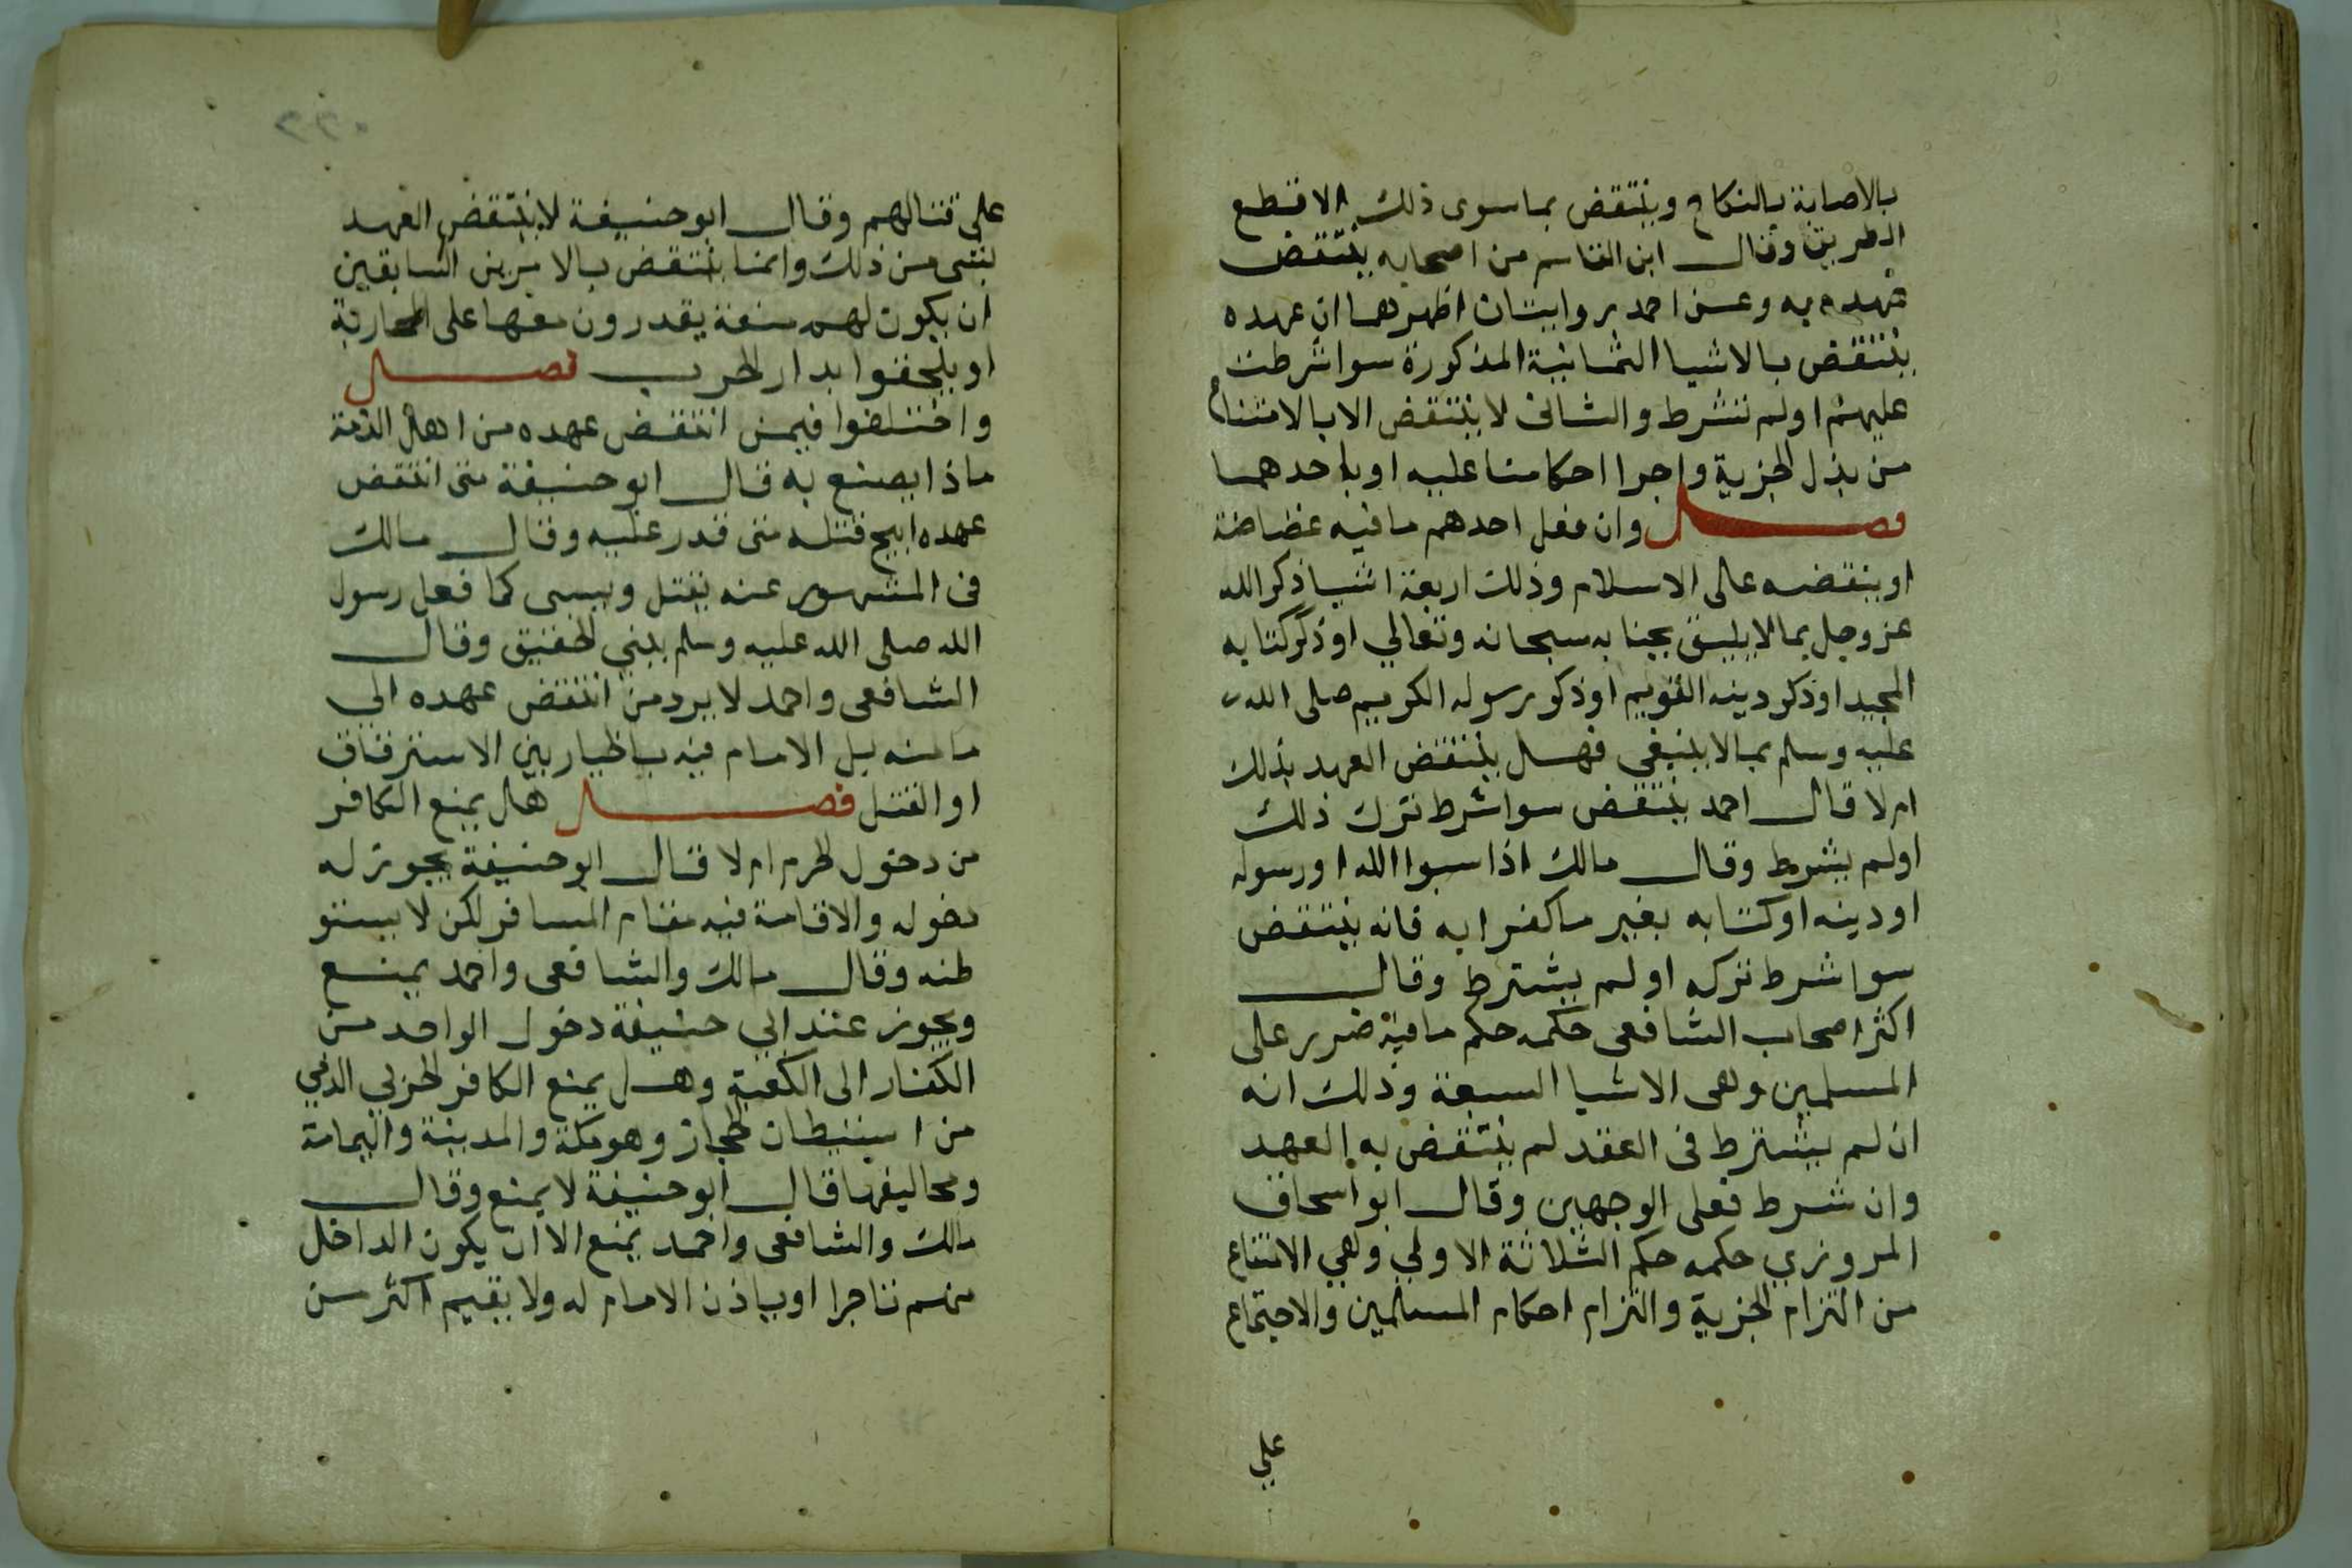 بالاصابة بالنكاح وينتقض بما سوى ذلك الا قطع
الطريق وقال ابن القاسم من اصحابه ينتقض
عهده به وعن احمد روايتان اظهرهما ان عهده
ينتقض بالاشيا الثمانية المذكورة سوا شرطت
عليهم او لم تشرط والثاني لا ينتقض الا بالامتناع
من بذل الجزية واجرا احكامنا عليه او باحدهما
فصل وان فعل احدهم ما فيه غضاضة
او ينقضه على الاسلام وذلك اربعة اشيا ذكر الله
عز وجل بما لا يليق بجنابه سبحانه وتعالي او ذكر كتابه
المجيد او ذكر دينه القويم او ذكر رسوله الكريم صلى الله
عليه وسلم بما لا ينبغي فهل ينتقض العهد بذلك
ام لا قال احمد ينتقض سوا شرط ترك ذلك
او لم يشرط وقال مالك اذا سبوا الله او رسوله
او دينه او كتابه بغير ما كفرا به فانه ينتقض
سوا شرط تركه او لم يشترط وقال
اكثر اصحاب الشافعى حكمه حكم ما فيه ضرر على
المسلمين وهى الاشيا السبعة وذلك انه
ان لم يشترط فى العقد لم ينتقض به العهد
وان شرط فعلى الوجهين وقال ابو اسحاق
المروزي حكمه حكم الثلاثة الاولي وهي الامتناع
من التزام الجزية والتزام احكام المسلمين والاجتماع
علي
على قتالهم وقال ابو حنيفة لا ينتقض العهد
بشى من ذلك وانما ينتقض بالامرين السابقين
ان يكون لهم منعة يقدرون معها على المحاربة
او يلحقوا بدار الحرب فصل
واختلفوا فيمن انتقض عهده من اهل الذمة
ماذا يصنع به قال ابو حنيفة متى انتقض
عهده ابيح قتله متى قدر عليه وقال مالك
فى المشهور عنه يقتل ويسبى كما فعل رسول
الله صلى الله عليه وسلم ببني الحقيق وقال
الشافعى واحمد لا يرد من انتقض عهده الي
مامنه بل الامام فيه باظيار بين الاسترقاق
او القتل فصل هل يمنع الكافر
من دخول الحرم ام لا قال ابو حنيفة يجوز له
دخوله والاقامة فيه مقام المسافر لكن لا يستو
طنه وقال مالك والشافعى واحمد يمنع
ويجوز عند ابي حنيفة دخول الواحد من
الكفار الى الكعبة وهل يمنع الكافر الحربي الذمي
من استيطان الحجاز وهو مكة والمدينة واليمامة
ومخاليفها قال ابو حنيفة لا يمنع وقال
مالك والشافعى واحمد يمنع الا ان يكون الداخل
منهم تاجرا او باذن الامام له ولا يقيم اكثر من